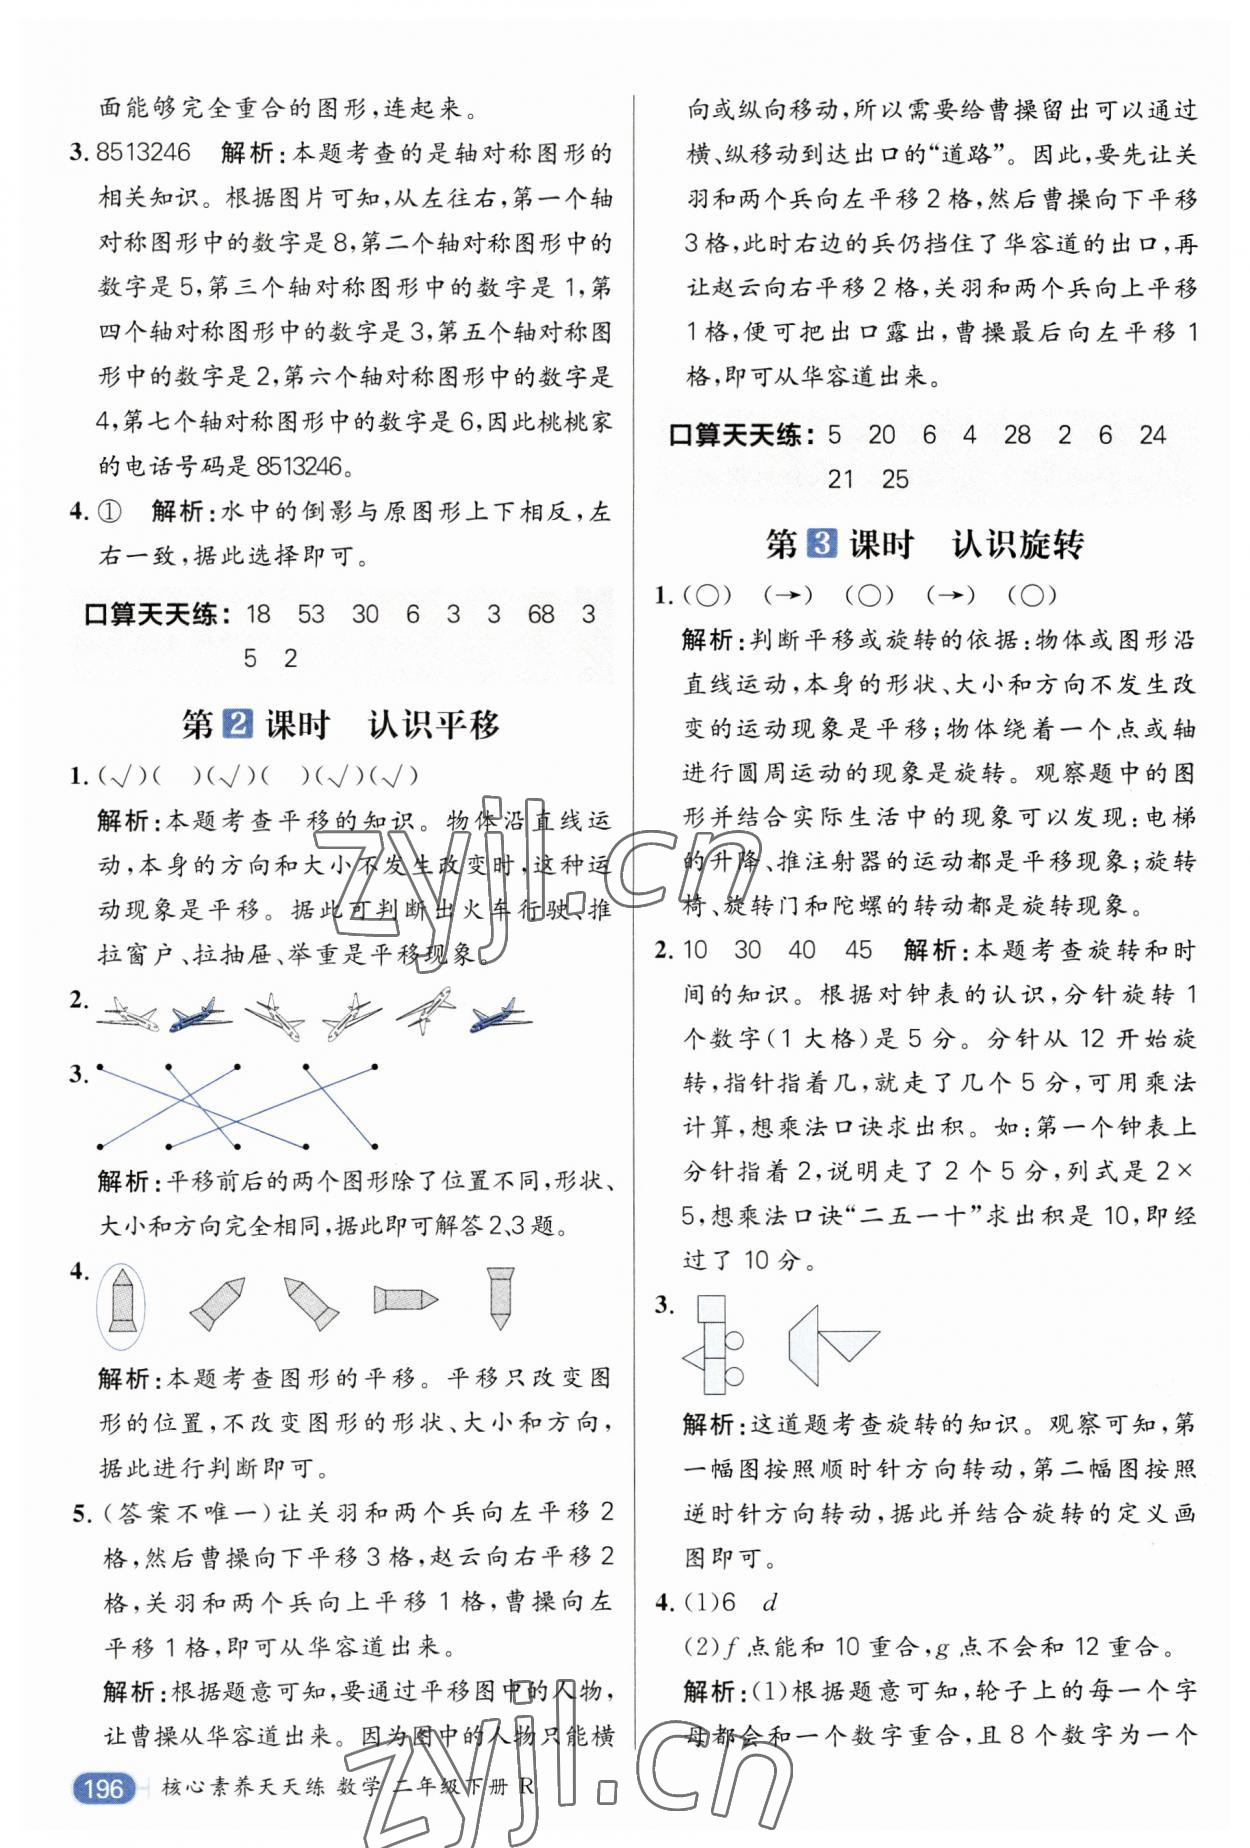 面能够完全重合的图形,连起来。
3. 8513246 解析:本题考查的是轴对称图形的
相关知识。根据图片可知,从左往右,第一个轴
对称图形中的数字是8,第二个轴对称图形中的
数字是5,第三个轴对称图形中的数字是1,第
四个轴对称图形中的数字是3,第五个轴对称图
形中的数字是2,第六个轴对称图形中的数字是
4,第七个轴对称图形中的数字是6,因此桃桃家
的电话号码是8513246。
4. ① 解析:水中的倒影与原图形上下相反,左
右一致,据此选择即可。
口算天天练: 18 53 30 6 3 3 68 3
5 2
第2课时 认识平移
1. (√)( )(√)( )(√)(√)
解析:本题考查平移的知识。物体沿直线运
动,本身的方向和大小不发生改变时,这种运
动现象是平移。据此可判断出火车行驶、推
拉窗户、拉抽屉、举重是平移现象。
2.
3.
解析:平移前后的两个图形除了位置不同,形状、
大小和方向完全相同,据此即可解答2、3题。
4.
解析:本题考查图形的平移。平移只改变图
形的位置,不改变图形的形状、大小和方向,
据此进行判断即可。
5. (答案不唯一)让关羽和两个兵向左平移2
格,然后曹操向下平移3格,赵云向右平移2
格,关羽和两个兵向上平移1格,曹操向左
平移1格,即可从华容道出来。
解析:根据题意可知,要通过平移图中的人物,
让曹操从华容道出来。因为图中的人物只能横
向或纵向移动,所以需要给曹操留出可以通过
横、纵移动到达出口的“道路”。因此,要先让关
羽和两个兵向左平移2格,然后曹操向下平移
3格,此时右边的兵仍挡住了华容道的出口,再
让赵云向右平移2格,关羽和两个兵向上平移
1格,便可把出口露出,曹操最后向左平移1
格,即可从华容道出来。
口算天天练: 5 20 6 4 28 2 6 24
21 25
第3课时 认识旋转
1. (○) (→) (○) (→) (○)
解析:判断平移或旋转的依据:物体或图形沿
直线运动,本身的形状、大小和方向不发生改
变的运动现象是平移;物体绕着一个点或轴
进行圆周运动的现象是旋转。观察题中的图
形并结合实际生活中的现象可以发现:电梯
的升降、推注射器的运动都是平移现象;旋转
椅、旋转门和陀螺的转动都是旋转现象。
2. 10 30 40 45 解析:本题考查旋转和时
间的知识。根据对钟表的认识,分针旋转1
个数字(1大格)是5分。分针从12开始旋
转,指针指着几,就走了几个5分,可用乘法
计算,想乘法口诀求出积。如:第一个钟表上
分针指着2,说明走了2个5分,列式是2×
5,想乘法口诀“二五一十”求出积是10,即经
过了10分。
3.
解析:这道题考查旋转的知识。观察可知,第
一幅图按照顺时针方向转动,第二幅图按照
逆时针方向转动,据此并结合旋转的定义画
图即可。
4. (1)6 d
(2)f点能和10重合,g点不会和12重合。
解析:(1)根据题意可知,轮子上的每一个字
母都会和一个数字重合,且8个数字为一个
196 核心素养天天练 数学 二年级下册 R
zyjl.cn
zyjl.cn